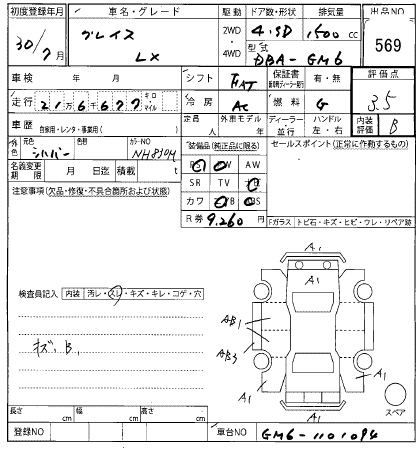 初度登録年月 車名・グレード 駆動 ドア数・形状 排気量 出品NO
30/7月 グレイス LX 2WD 4WD 4.5D 1500 cc 569
型式 DBA-GM6
車検 年 月 シフト FAT 保証書 有・無 評価点
走行 キロ・マイル 冷房 AC 燃料 G 3.5
車歴 自家用・レンタ・事業用( ) 定員 人 外車モデル 年 ディーラー・並行 ハンドル 左・右 内装評価 B
外色 元色 シルバー 色替 カラーNO NH830M 装備品(純正品に限る) セールスポイント(正常に動作するもの)
名義変更期限 月 日迄 積載 t AW
注意事項(欠品・修復・不具合箇所および状態) SR TV
カワ
R券 9,260 円 Fガラス トビ石・キズ・ヒビ・ウレ・リペア跡
A1
A1
検査員記入 内装 汚レ・スレ・キズ・キレ・コゲ・穴
AB1
キズ・B,
AB3
A1 A1
A1
スペア
長さ cm 幅 cm 高さ cm
登録NO 車台NO GM6-1101094